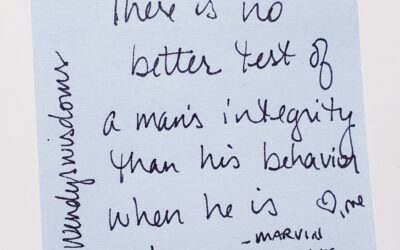 There is no
better test of
a man's integrity
than his behavior
when he is ♡, me
- MARVIN
wendyswisdoms